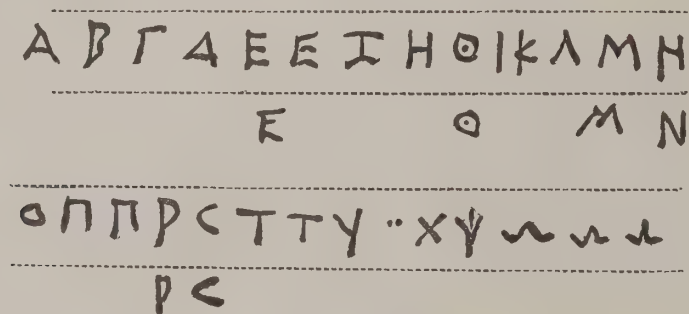 Α Β Γ Δ Ε Ε Ζ Η Θ Ι Κ Λ Μ Ν
Ε Θ Μ Ν
Ο Π Π Ρ Ϲ Τ Τ Υ ·· Χ Ψ Ω Ω Ω
Ρ Ϲ